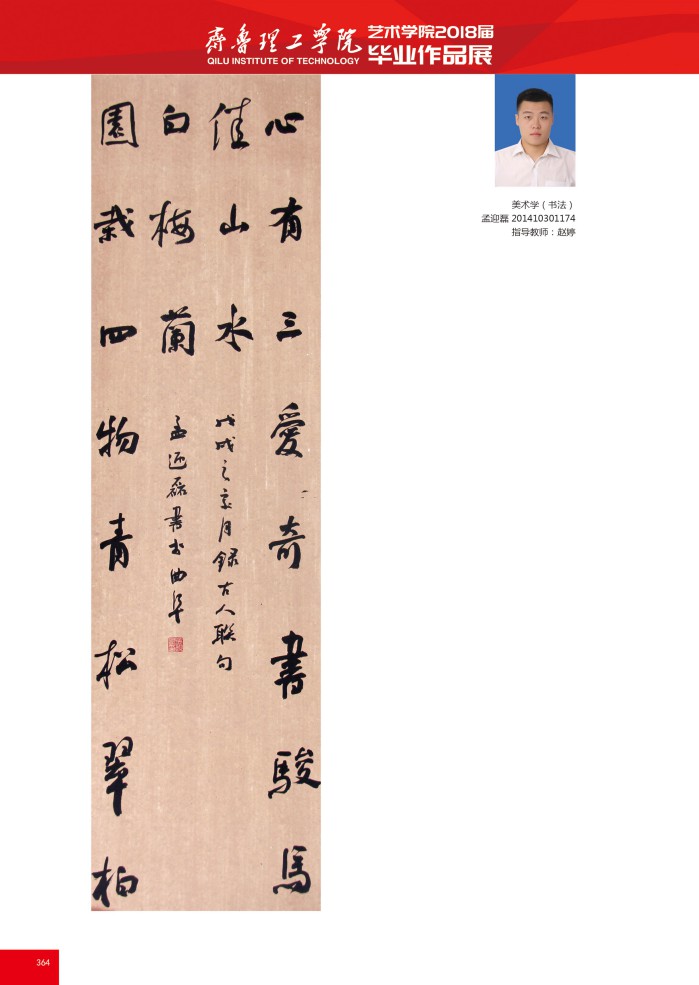 齊魯理工學院
QILU INSTITUTE OF TECHNOLOGY
艺术学院2018届
毕业作品展
美术学（书法）
孟迎磊 201410301174
指导教师：赵婷
心有三愛奇書駿馬
佳山水
園栽四物青松翠柏
白梅蘭
戊戌之月錄古人聯句
孟迎磊書於曲阜
364